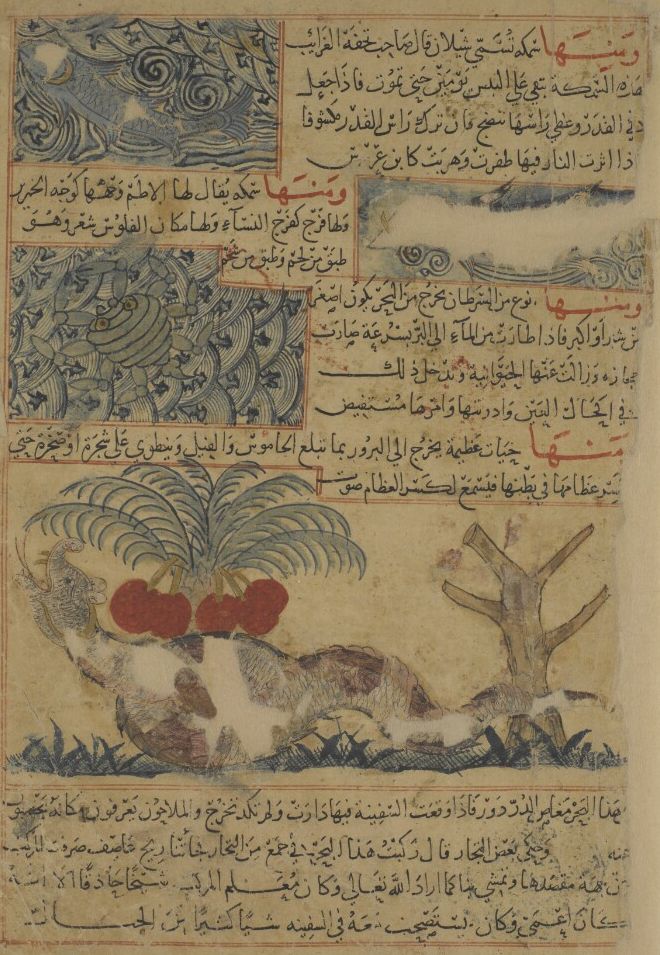 ومنها سمكه تسمى شيلان قال صاحب تحفة الغرايب
هذه السمكة تبقى على اليبس يومين حتى تموت فاذا جعل
في القدر وغطى راسها تنضج فان ترك راس القدر مكشوفا
اذا اثرت النار فيها طفرت وهربت كابن عرس
ومنها سمكه يقال لها الاطم وجهها كوجه الخنزير
ولها فرج كفرج النساء ولها مكان الفلوس شعر وهو
طبق من لحم وطبق من شحم
ومنها نوع من السرطان يخرج من البحر يكون اصغر
من شبر او اكبر فاذا طارت من الماء الى البر بسرعة صارت
حجارة وزالت عنها الحيوانية ويدخل ذلك
في اكحال العين وادويتها وامرها مستفيض
ومنها حيات عظيمة يخرج الى البر وربما تبلع الجاموس والفيل وينطوي على شجرة او صخرة حتى
تكسر عظامها في بطنها فيسمع لكسر العظام صوت
هذا البحر مغاير الدردور فاذا وقعت السفينة فيها دارت ولم تكد تخرج والملاحون يعرفون مكانه
وحكى بعض التجار قال ركبت هذا البحر في جمع من التجار فجاءتنا ريح عاصف صرفت المركب
عن جهة مقصدها ونمشي بنا كما اراد الله تعالى وكان معلم المركب شيخا حاذقا الا انه
كان اعمى وكان يستصحب معه في السفينه شيا كثيرا من الحبال